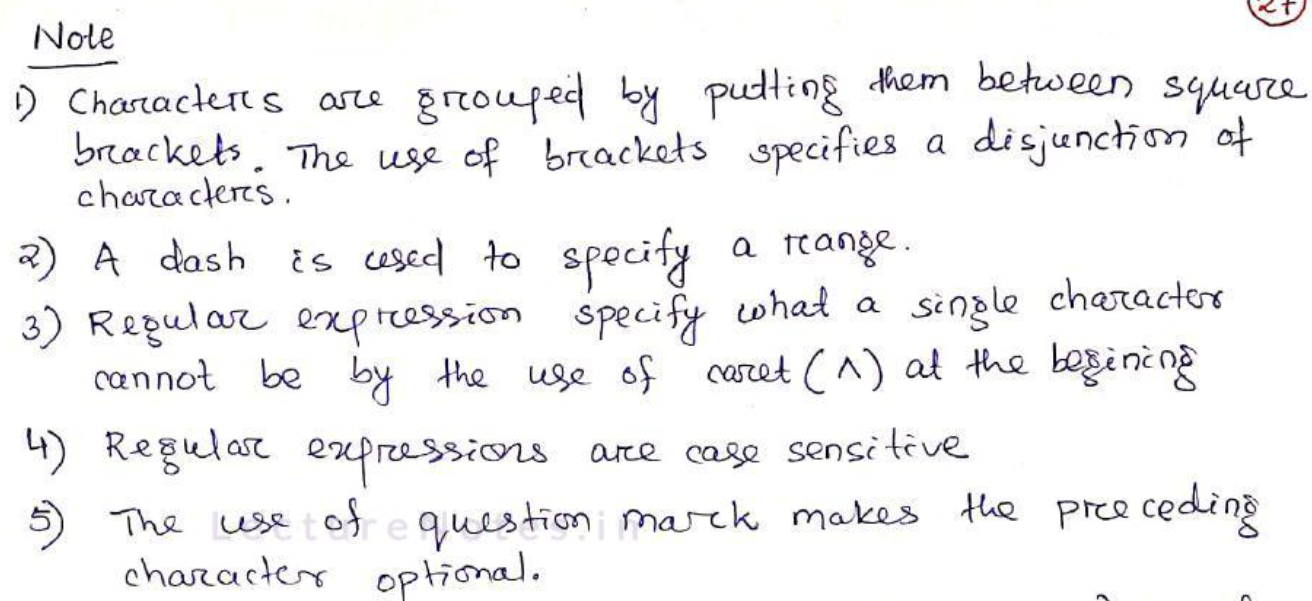 27
Note
1) Characters are grouped by putting them between square
brackets. The use of brackets specifies a disjunction of
characters.
2) A dash is used to specify a range.
3) Regular expression specify what a single character
cannot be by the use of caret (^) at the begining
4) Regular expressions are case sensitive
5) The use of question mark makes the preceding
character optional.
LectureNotes.in